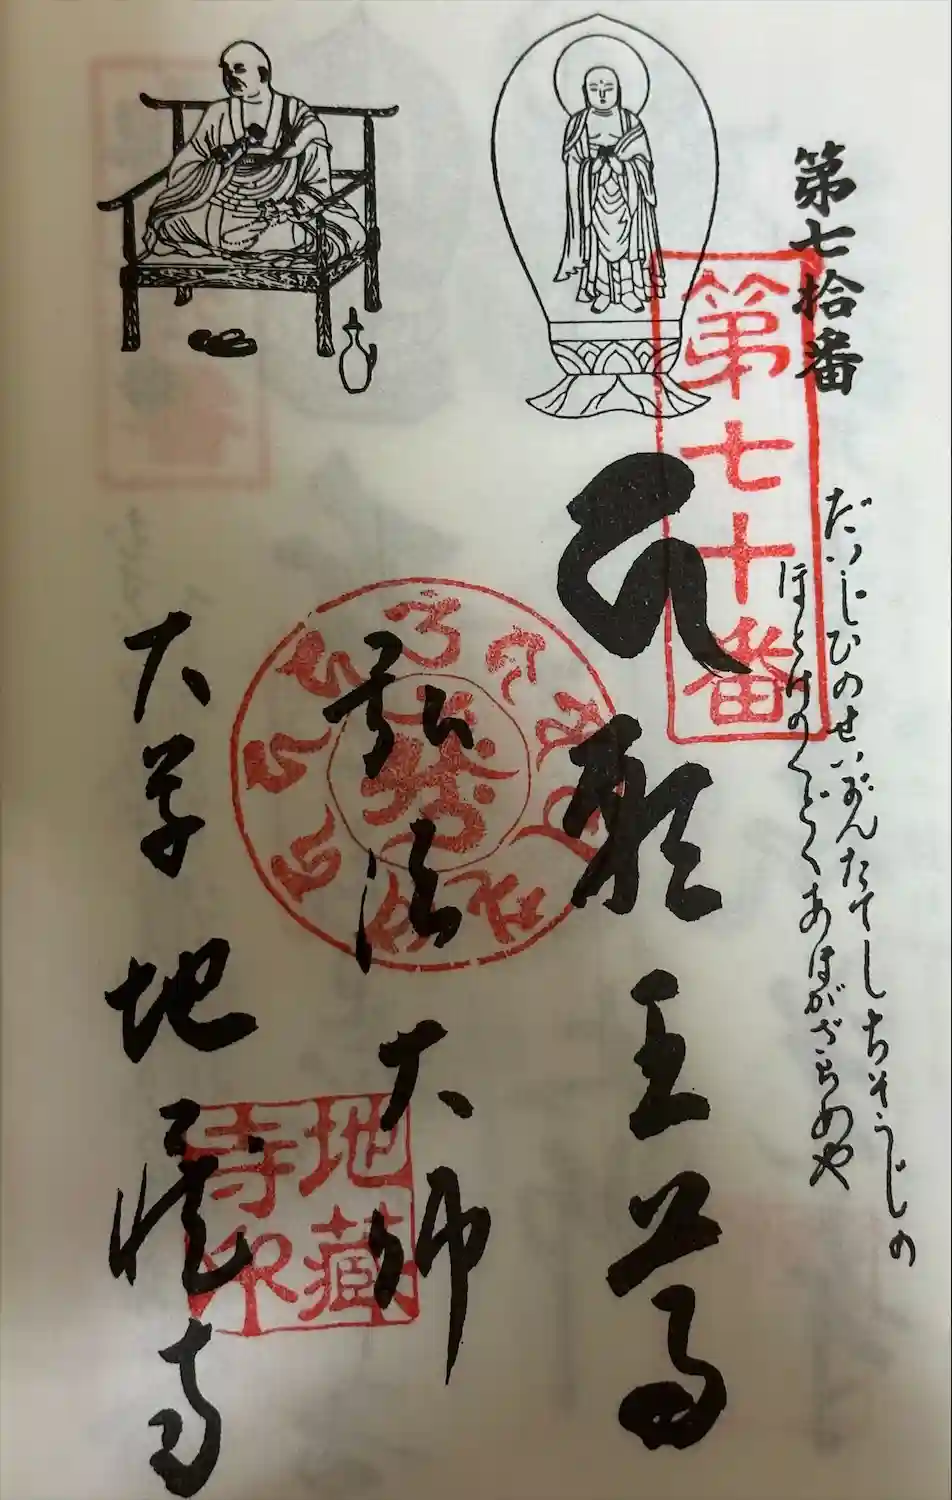 第七拾番
第七十番
だいじひのせいがんたてしちそうじの
ほとけのくどくあほがざらめや
願王尊
弘法大師
大草 地蔵寺
地藏
寺印